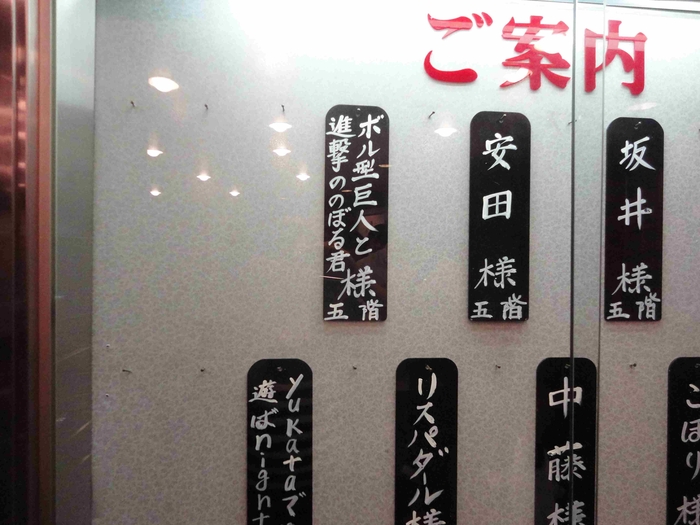 ご案内
坂井様
五階
安田様
五階
ボル型巨人と
進撃ののぼる君様
五階
こぼり様
中藤様
リスパダール様
yukataで
遊ばnight